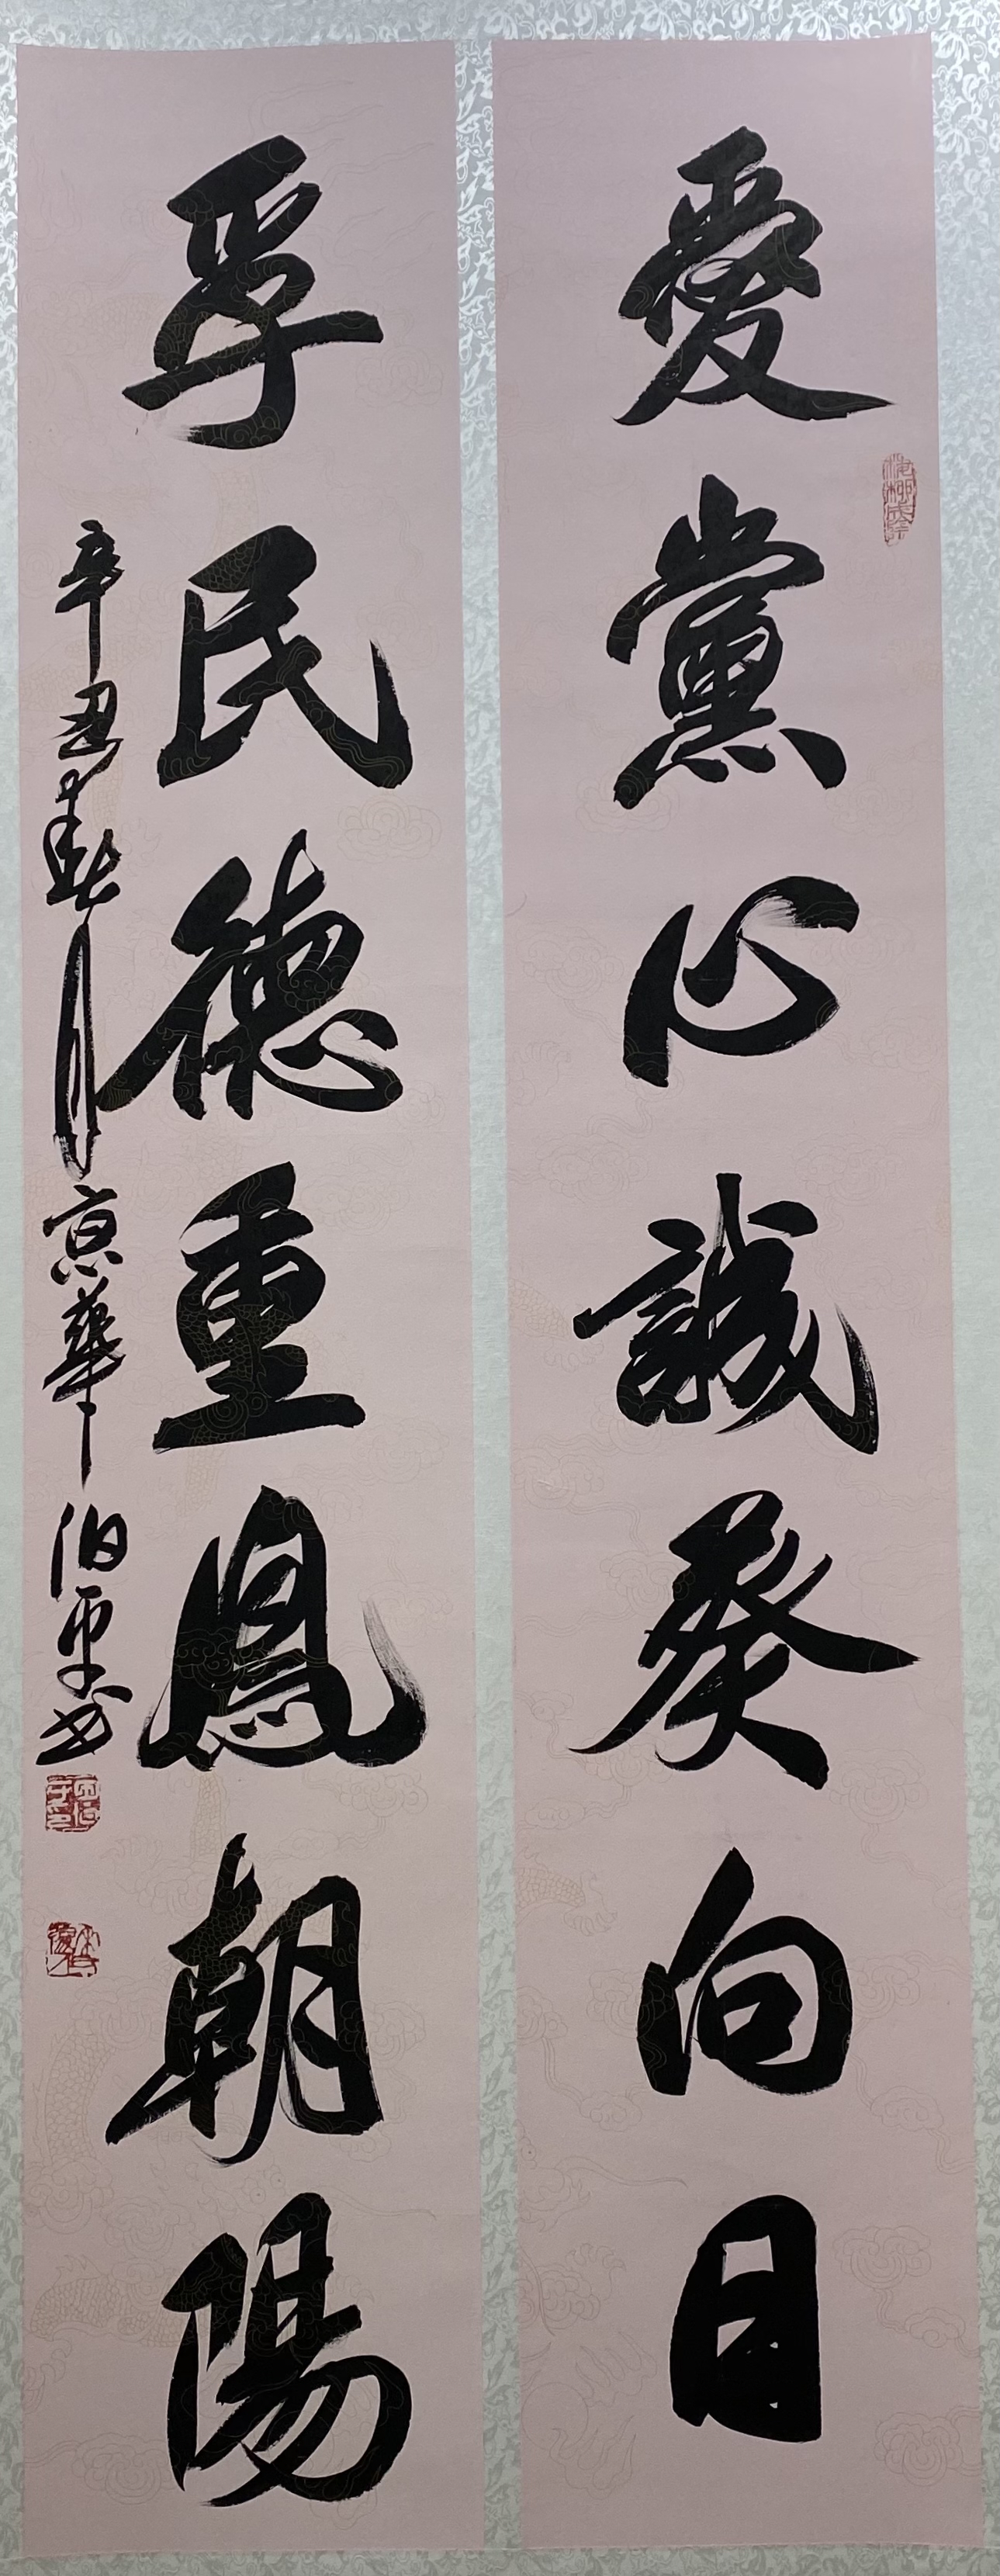 愛黨心誠葵向日
孚民德重鳳朝陽
辛丑春月京華伯平書